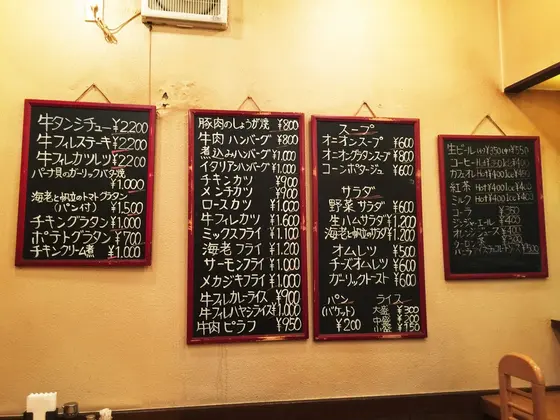 牛タンシチュー ¥2,200
牛フィレステーキ ¥2,200
牛フィレカツレツ ¥2,200
バーナ貝のガーリックバター焼
¥1,000
海老と帆立のトマトグラタン
(パン付) ¥1,500
チキングラタン ¥1,000
ポテトグラタン ¥700
チキンクリーム煮 ¥1,000
豚肉のしょうが焼 ¥800
牛肉ハンバーグ ¥800
煮込みハンバーグ ¥1,000
イタリアンハンバーグ ¥1,000
チキンカツ ¥900
メンチカツ ¥900
ロースカツ ¥1,000
牛フィレカツ ¥1,600
ミックスフライ ¥1,100
海老フライ ¥1,200
サーモンフライ ¥1,000
メカジキフライ ¥1,000
牛フィレカレーライス ¥900
牛フィレハヤシライス ¥1,000
牛肉ピラフ ¥950
スープ
オニオンスープ ¥600
オニオングラタンスープ ¥800
コーンポタージュ ¥600
サラダ
野菜サラダ ¥600
生ハムサラダ ¥1,200
海老と帆立のサラダ ¥1,200
オムレツ ¥500
チーズオムレツ ¥600
ガーリックトースト ¥600
パン ライス
(バケット) 大盛 ¥300
¥200 中盛 ¥200
小盛 ¥150
生ビール
コーヒー Hot ¥350 Ice ¥400
カフェオレ Hot ¥400 Ice
紅茶 Hot ¥400 Ice ¥400
ミルク Hot ¥400 Ice ¥400
コーラ ¥350
ジンジャーエール ¥400
オレンジジュース ¥400
ウーロン茶